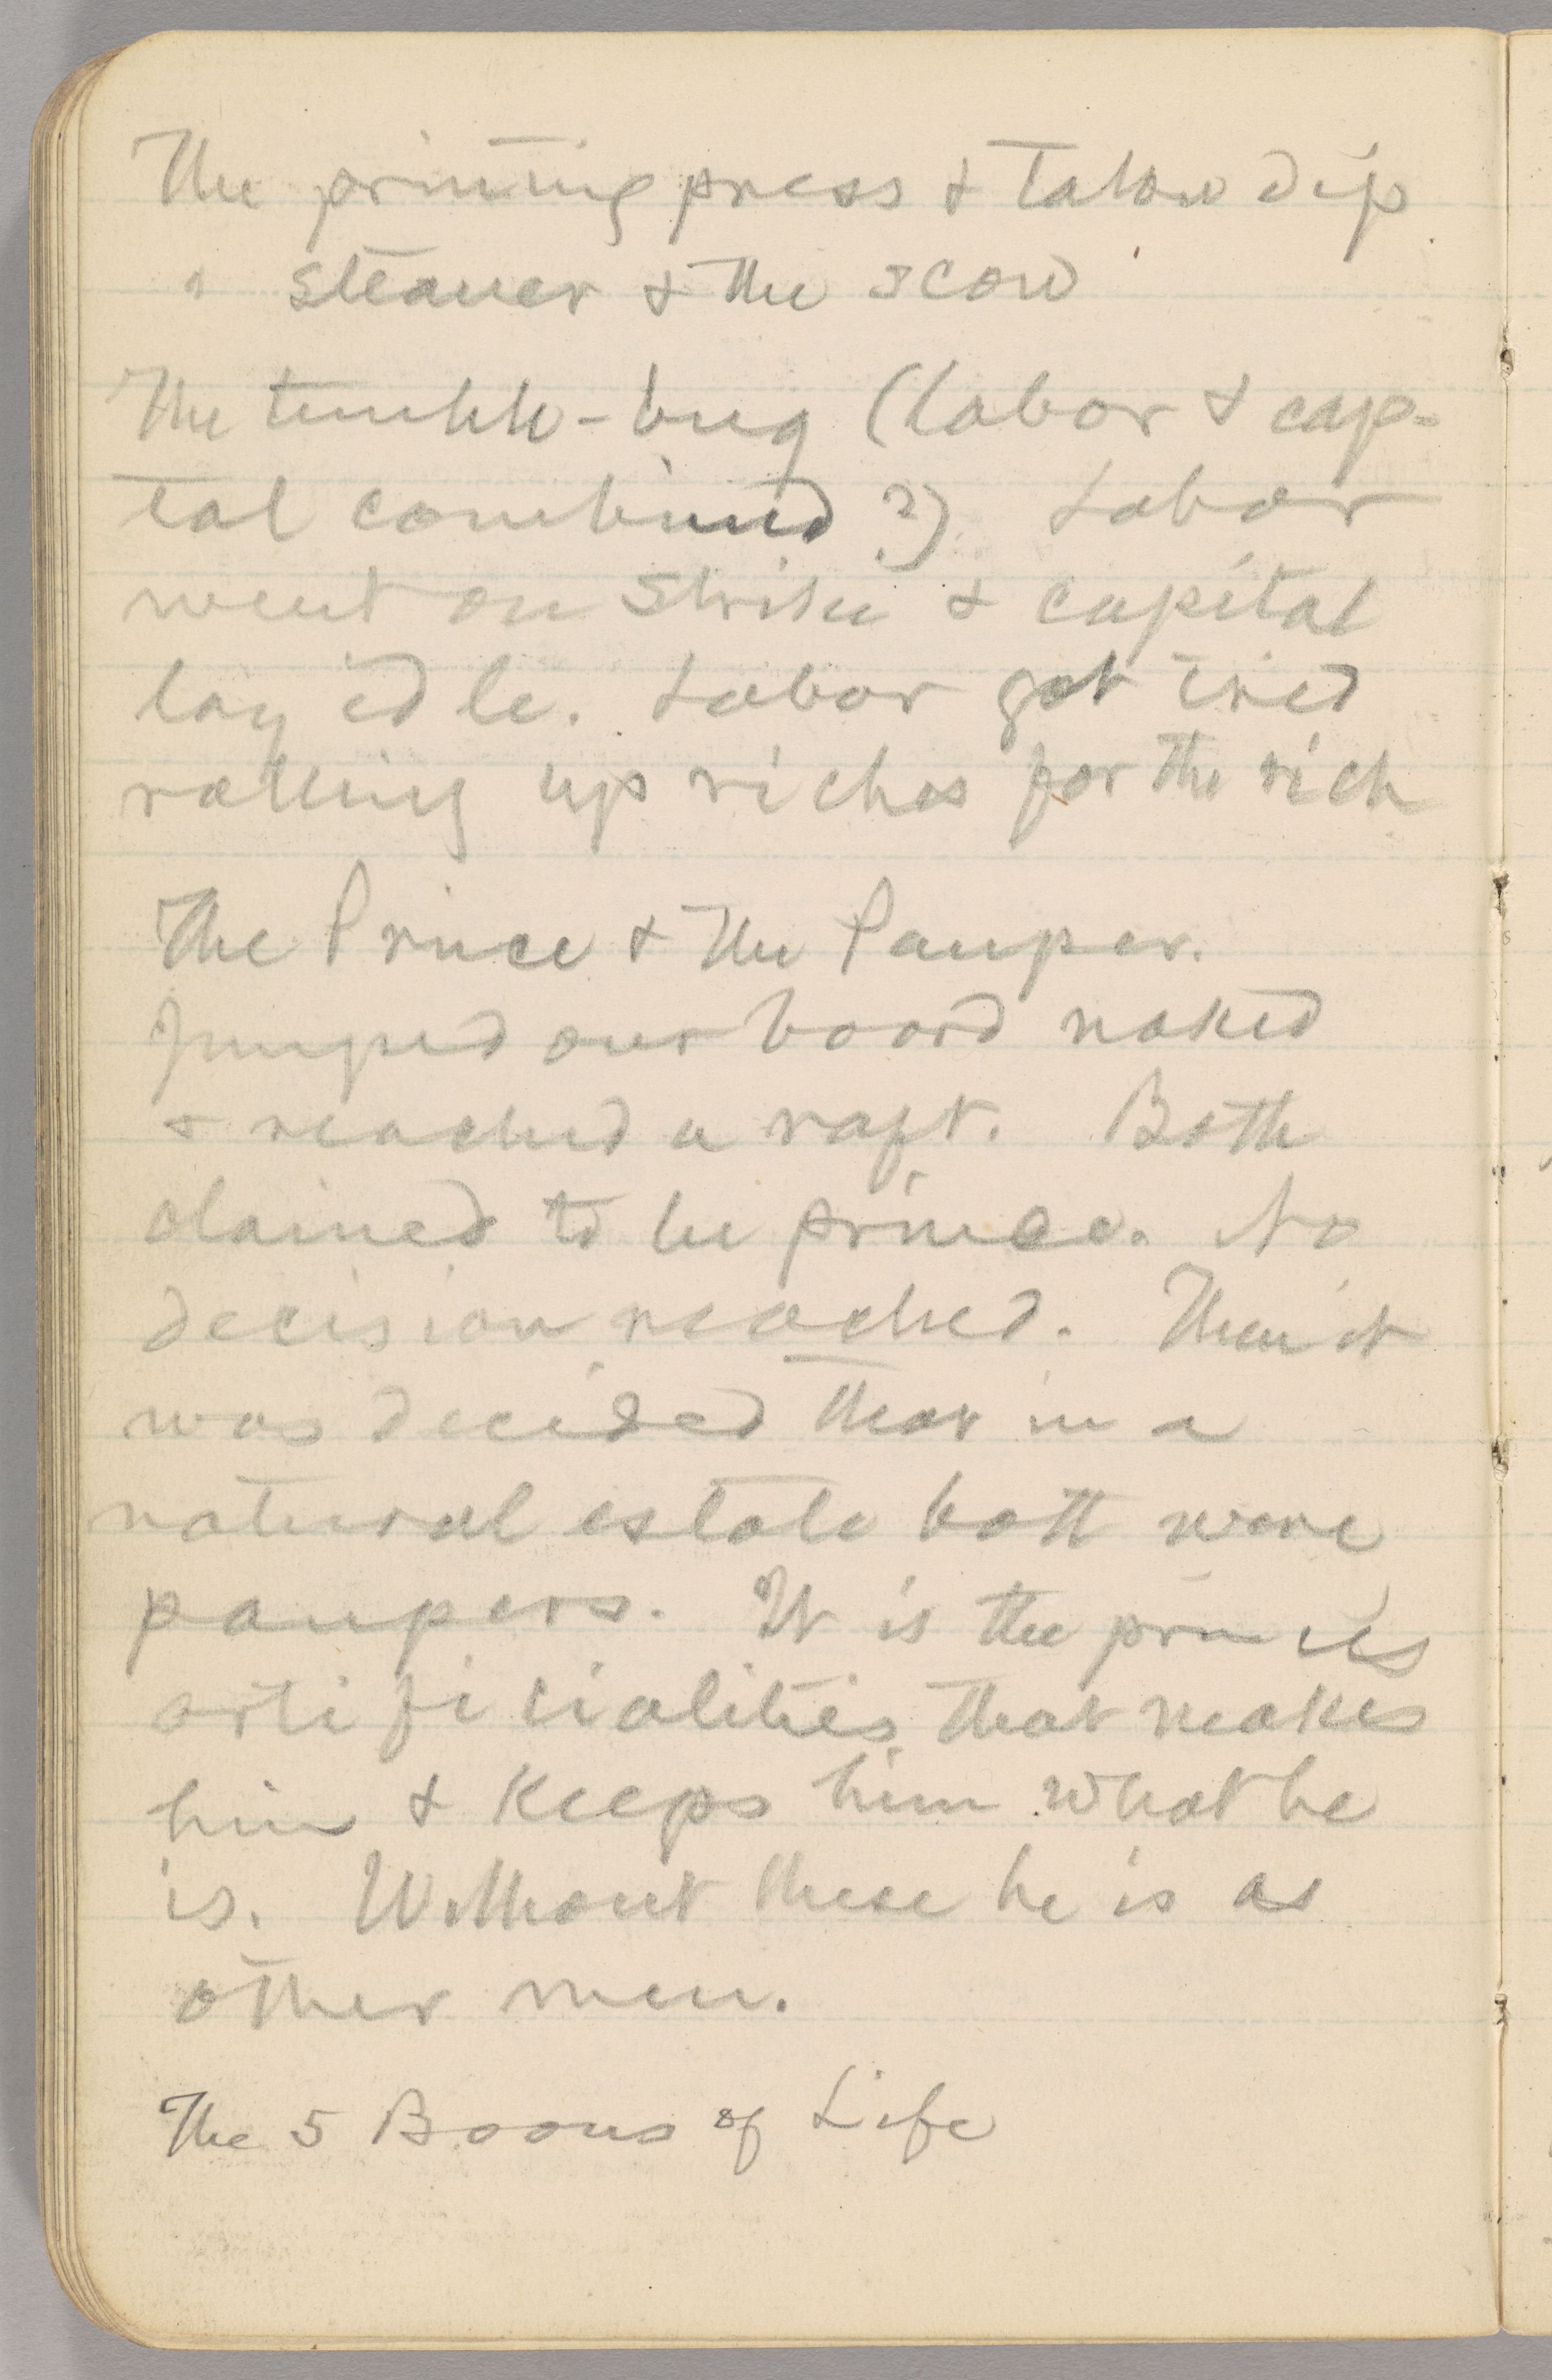 The printing press & tallow dip
" steamer & the scow
The tumble-bug (Labor & cap-
tal combined?) Labor
went on strike & capital
lay idle. Labor got tired
rolling up riches for the rich
The Prince & the Pauper.
Jumped overboard naked
& reached a raft. Both
claimed to be prince. No
decision reached. Then it
was decided that in a
natural estate both were
paupers. It is the princes
artificialities that makes
him & keeps him what he
is. Without these he is as
other men.
The 5 Boons of Life